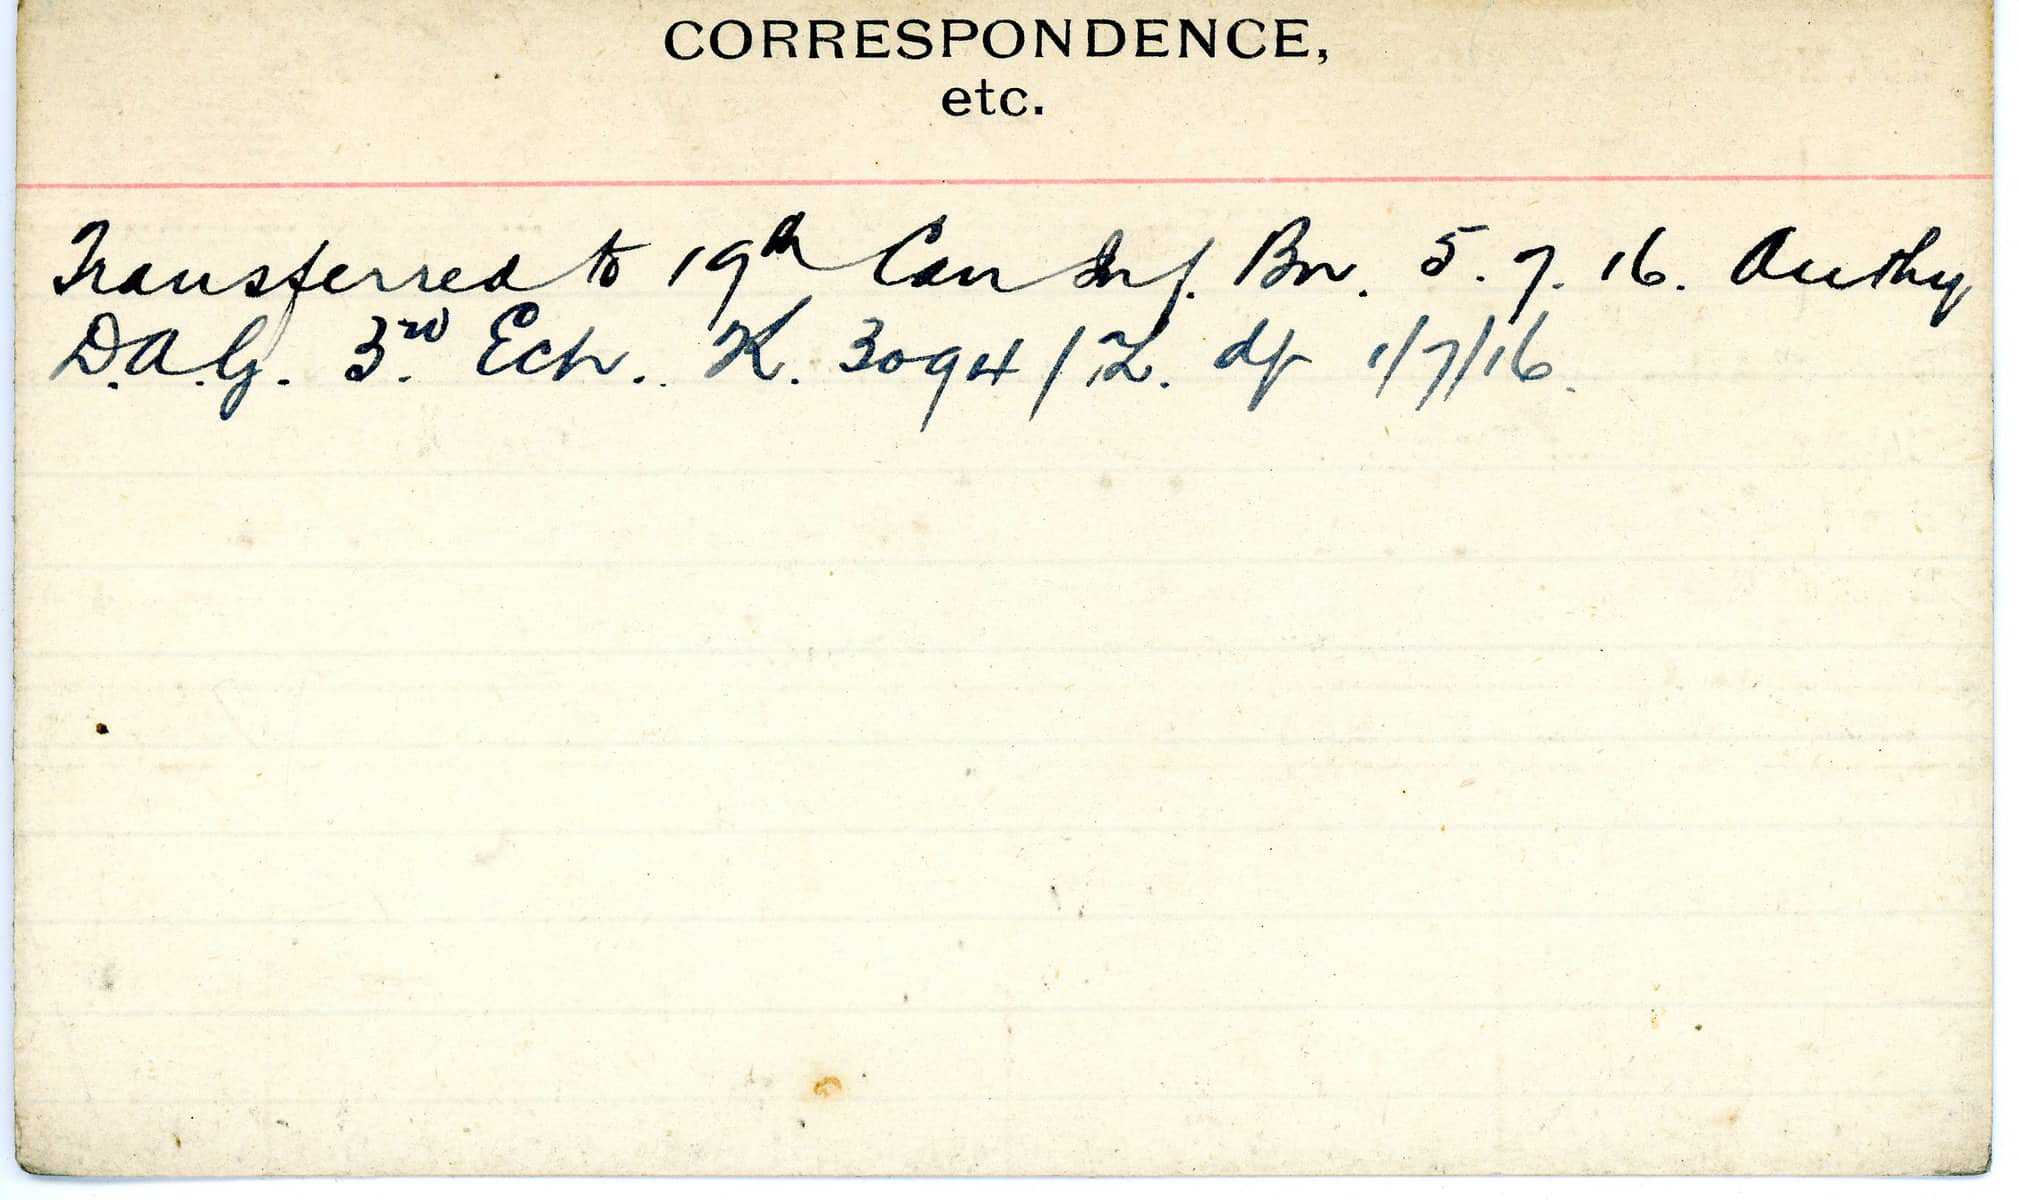 CORRESPONDENCE,
etc.
Transferred to 19th Can Inf. Bn. 5.7.16. Authy
D.A.G. 3rd Ech. K. 3094/Z. df 1/7/16.